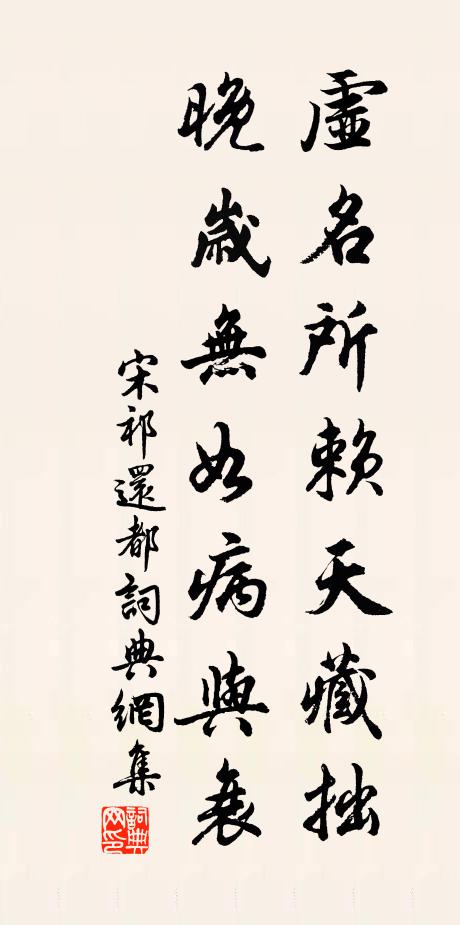 虛名所賴天藏拙
晚歲無如病與衰
宋祁還都詞典網集
詞典网印